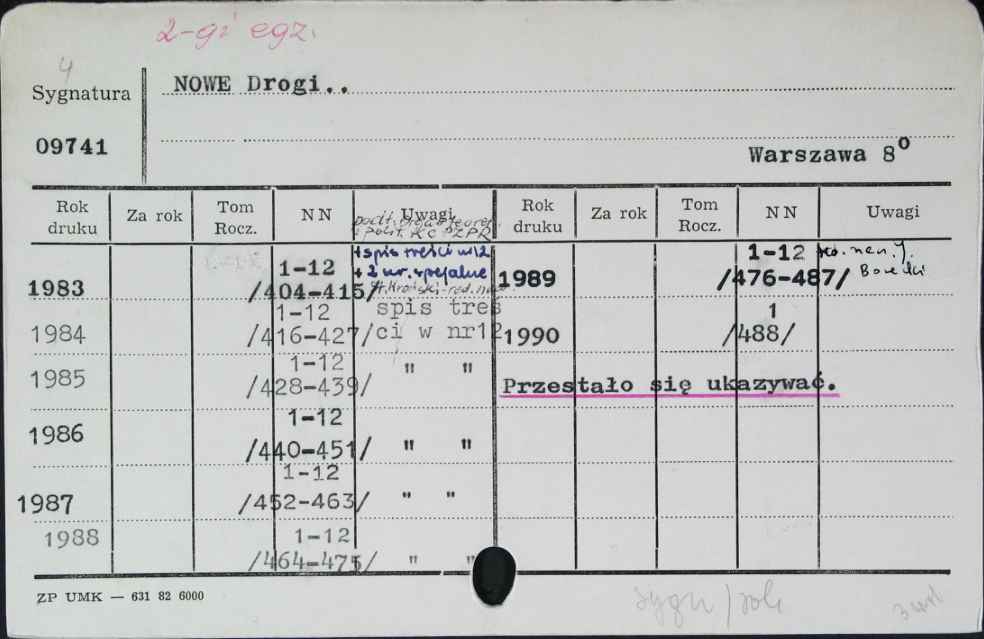 2-gi egz.
4
Sygnatura
NOWE Drogi..
09741
Warszawa 8°
Rok druku | Za rok | Tom Rocz. | NN | Uwagi | Rok druku | Za rok | Tom Rocz. | NN | Uwagi
i polit. KC PZPR
+ spis treści w 12
+ 2 nr. specjalne
1983 1-12 /404-415/
1984 1-12 /416-427/ spis treści w nr12
1985 1-12 /428-439/ " "
1986 1-12 /440-451/ " "
1987 1-12 /452-463/ " "
1988 1-12 /464-475/ " "
1989 1-12 /476-487/
1990 1 /488/
Przestało się ukazywać.
ZP UMK — 631 82 6000
sygn/rok